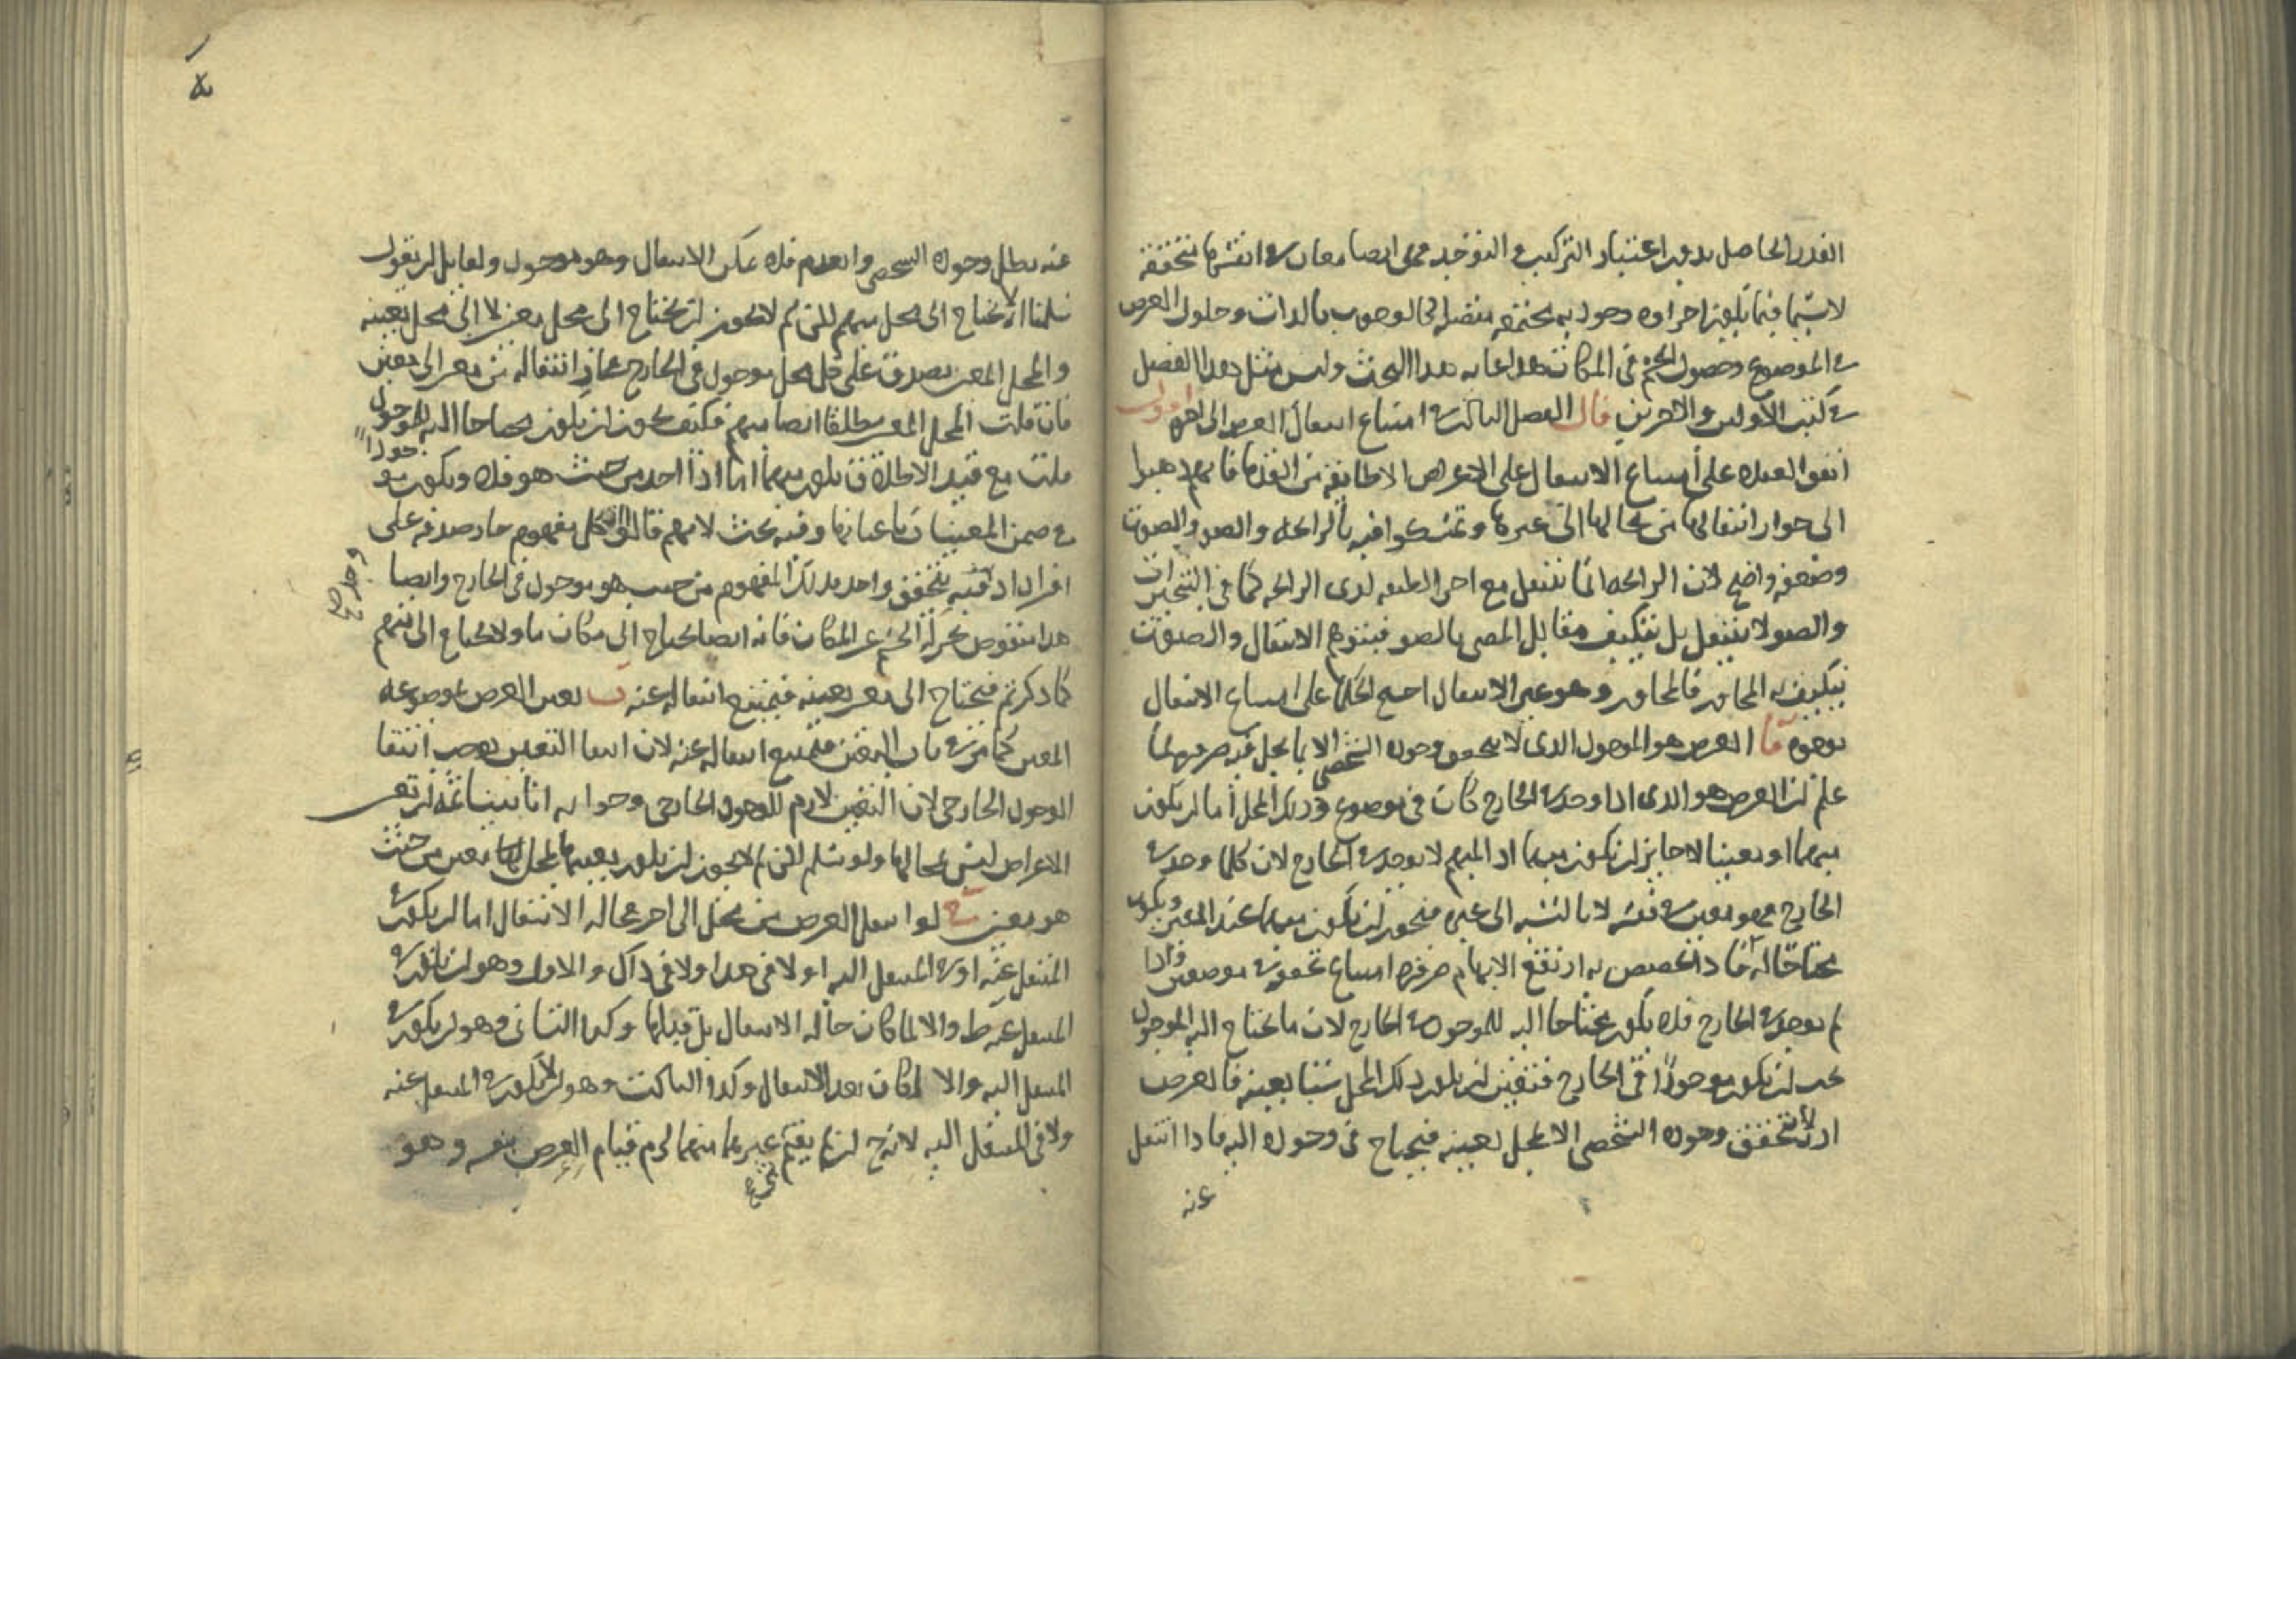 القدر الحاصل بدون اعتبار التركيب و التوحيد فهي ايضا معان في انفسها متحققة
لا سيما فيما يكون اجزاوه وجودية مجتمعة منضما الى الوجوب بالذات وحلول العرض
في الموضوع وحصول الجسم في المكان هذا غاية هذا البحث وليس مثل هذا الفصل
في كتب الاولين والاخرين قال الفصل الثالث في امتناع انتقال العرض الى اخره اقول
اتفق العقلاء على امتناع الانتقال على الاعراض الا طايفة من القدما فانهم ذهبوا
الى جواز انتقالها من محالها الى غيرها وتمسكوا فيه بالرايحة والضوء والصوت
وضعفه واضح لان الرايحة انما تنتقل مع اجزاء لطيفة لذى الرايحة كما في التبخيرات
والضوء لا ينتقل بل يتكيف مقابل المضى بالضوء فيتوهم الانتقال والصوت
يتكيف به المجاور فالمجاور وهو غير الانتقال احتج الحكماء على امتناع الانتقال
بوجوه آ العرض هو الموجود الذى لا يتحقق وجوده الشخصى الا بما يحل فيه
علم ان العرض هو الذى اذا وجد في الخارج كان في موضوع وذلك المحل اما ان يكون
مبهما او معينا لا جايز ان يكون مبهما اذ المبهم لا يوجد في الخارج لان كلما وجد في
الخارج فهو معين في نفسه لا بالنسبة الى غيره فيجوز ان يكون مبهما عند المعين ويكون
محتاجا له فاذا تخصص به ارتفع الابهام ضرورة امتناع
لم يوجد في الخارج فلا يكون محتاجا اليه للموجود في الخارج لان ما يحتاج اليه الموجود
يجب ان يكون موجودا في الخارج فتعين ان يكون ذلك المحل شيئا بعينه فالعرض
اذن لا يتحقق وجوده الشخصى الا لمحل بعينه فيحتاج في وجوده اليه فاذا انتقل
عنه
عنه بطل وجوده الشخصى وانعدم فلا يمكن الانتقال وهو موجود ولقايل ان يقول
سلمنا انه لا يحتاج الى محل مبهم لكن لم لا يجوز ان يحتاج الى محل معين لا الى محل بعينه
والمحل المعين يصدق على كل محل موجود في الخارج فجاز انتقاله من معين الى معين
فان قلت المحل المعين مطلقا ايضا مبهم فكيف يجوز ان يكون محتاجا اليه للموجود
قلت مع قيد الاطلاق يكون مبهما اما اذا اخذ من حيث هو فلا ويكون موجودا
في ضمن المعينات باعيانها وفيه بحث لانهم قالوا ان كل مفهوم جاز صدقه على
افراد اذ فيه يتحقق واحد فذلك المفهوم من حيث هو موجود في الخارج وايضا
هذا منقوض بحركة الجسم عن المكان فانه ايضا يحتاج الى مكان ما ولا يحتاج الى مبهم
كما ذكرتم فيحتاج الى معين بعينه فيمتنع انتقاله عنه ب تعين العرض بموضوعه
المعين كما مر في باب التعين فيمتنع انتقاله عنه لان انتفا التعين يوجب انتفا
الوجود الخارجى لان التعين لازم للوجود الخارجى وجوابه انا بينا ثمة ان تعين
الاعراض ليس بمحالها ولو سلم لكن لم لا يجوز ان يكون تعينها بمحل ما معين من حيث
هو معين ج لو انتقل العرض من محل الى اخر فحالة الانتقال اما ان يكون في
المنتقل عنه او في المنتقل اليه او لا في هذا ولا في ذاك والاول وهو ان يكون في
المنتقل عنه بط والا لما كان حالة الانتقال بل قبلها وكذا الثانى وهو ان يكون في
المنتقل اليه والا لكان بعد الانتقال وكذا الثالث وهو ان لا يكون في المنتقل عنه
ولا في المنتقل اليه لانه ح ان لم يقم بغيرهما لزم قيام العرض بنفسه وهو